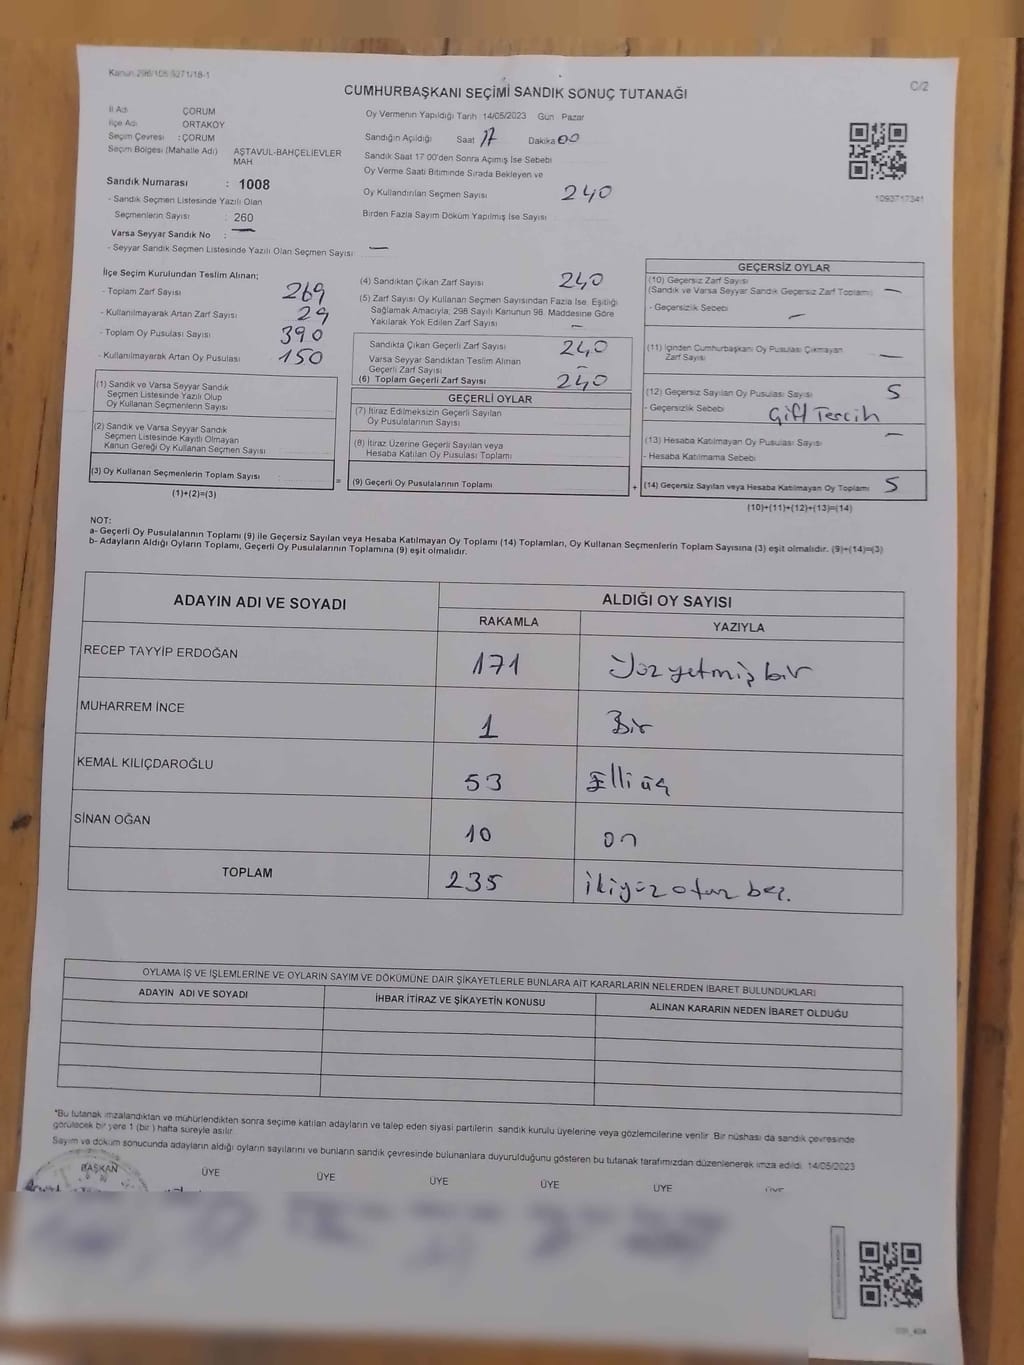 Kanun 298/105 6271/18-1
C/2
CUMHURBAŞKANI SEÇİMİ SANDIK SONUÇ TUTANAĞI
İl Adı ÇORUM
İlçe Adı ORTAKÖY
Seçim Çevresi : ÇORUM
Seçim Bölgesi (Mahalle Adı) AŞTAVUL-BAHÇELİEVLER MAH
Sandık Numarası : 1008
- Sandık Seçmen Listesinde Yazılı Olan
Seçmenlerin Sayısı : 260
Varsa Seyyar Sandık No : —
- Seyyar Sandık Seçmen Listesinde Yazılı Olan Seçmen Sayısı —
Oy Vermenin Yapıldığı Tarih 14/05/2023 Gün Pazar
Sandığın Açıldığı Saat 17 Dakika 00
Sandık Saat 17 00'den Sonra Açımış İse Sebebi
Oy Verme Saati Bitiminde Sırada Bekleyen ve
Oy Kullandırılan Seçmen Sayısı 240
Birden Fazla Sayım Döküm Yapılmış İse Sayısı
1093717341
İlçe Seçim Kurulundan Teslim Alınan;
- Toplam Zarf Sayısı 269
- Kullanılmayarak Artan Zarf Sayısı 29
- Toplam Oy Pusulası Sayısı 390
- Kullanılmayarak Artan Oy Pusulası 150
(1) Sandık ve Varsa Seyyar Sandık
Seçmen Listesinde Yazılı Olup
Oy Kullanan Seçmenlerin Sayısı
(2) Sandık ve Varsa Seyyar Sandık
Seçmen Listesinde Kayıtlı Olmayan
Kanun Gereği Oy Kullanan Seçmen Sayısı
(3) Oy Kullanan Seçmenlerin Toplam Sayısı
(1)+(2)=(3)
(4) Sandıktan Çıkan Zarf Sayısı 240
(5) Zarf Sayısı Oy Kullanan Seçmen Sayısından Fazla İse, Eşitliği
Sağlamak Amacıyla, 298 Sayılı Kanunun 98. Maddesine Göre
Yakılarak Yok Edilen Zarf Sayısı —
Sandıkta Çıkan Geçerli Zarf Sayısı 240
Varsa Seyyar Sandıktan Teslim Alınan
Geçerli Zarf Sayısı —
(6) Toplam Geçerli Zarf Sayısı 240
GEÇERLİ OYLAR
(7) İtiraz Edilmeksizin Geçerli Sayılan
Oy Pusulalarının Sayısı
(8) İtiraz Üzerine Geçerli Sayılan veya
Hesaba Katılan Oy Pusulası Toplamı
= (9) Geçerli Oy Pusulalarının Toplamı
GEÇERSİZ OYLAR
(10) Geçersiz Zarf Sayısı
(Sandık ve Varsa Seyyar Sandık Geçersiz Zarf Toplamı) —
- Geçersizlik Sebebi —
(11) İçinden Cumhurbaşkanı Oy Pusulası Çıkmayan
Zarf Sayısı —
(12) Geçersiz Sayılan Oy Pusulası Sayısı 5
- Geçersizlik Sebebi Çift Tercih
(13) Hesaba Katılmayan Oy Pusulası Sayısı —
- Hesaba Katılmama Sebebi
+ (14) Geçersiz Sayılan veya Hesaba Katılmayan Oy Toplamı 5
(10)+(11)+(12)+(13)=(14)
NOT:
a- Geçerli Oy Pusulalarının Toplamı (9) ile Geçersiz Sayılan veya Hesaba Katılmayan Oy Toplamı (14) Toplamları, Oy Kullanan Seçmenlerin Toplam Sayısına (3) eşit olmalıdır. (9)+(14)=(3)
b- Adayların Aldığı Oyların Toplamı, Geçerli Oy Pusulalarının Toplamına (9) eşit olmalıdır.
ADAYIN ADI VE SOYADI ALDIĞI OY SAYISI
RAKAMLA YAZIYLA
RECEP TAYYİP ERDOĞAN 171 Yüz yetmiş bir
MUHARREM İNCE 1 Bir
KEMAL KILIÇDAROĞLU 53 Elli üç
SİNAN OĞAN 10 on
TOPLAM 235 ikiyüz otuz beş.
OYLAMA İŞ VE İŞLEMLERİNE VE OYLARIN SAYIM VE DÖKÜMÜNE DAİR ŞİKAYETLERLE BUNLARA AİT KARARLARIN NELERDEN İBARET BULUNDUKLARI
ADAYIN ADI VE SOYADI İHBAR İTİRAZ VE ŞİKAYETİN KONUSU ALINAN KARARIN NEDEN İBARET OLDUĞU
*Bu tutanak imzalandıktan ve mühürlendikten sonra seçime katılan adayların ve talep eden siyasi partilerin sandık kurulu üyelerine veya gözlemcilerine verilir. Bir nüshası da sandık çevresinde
görülecek bir yere 1 (bir) hafta süreyle asılır.
Sayım ve döküm sonucunda adayların aldığı oyların sayılarını ve bunların sandık çevresinde bulunanlara duyurulduğunu gösteren bu tutanak tarafımızdan düzenlenerek imza edildi. 14/05/2023
BAŞKAN ÜYE ÜYE ÜYE ÜYE ÜYE ÜYE